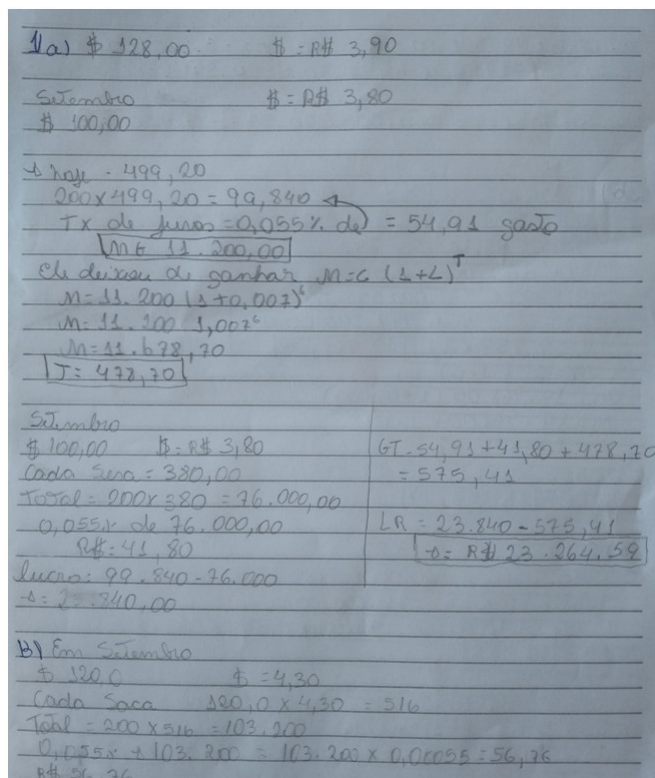 1)a) $ 128,00 $ = R$ 3,90
Setembro $ = R$ 3,80
$ 100,00
→ hoje - 499,20
200 x 499,20 = 99,840
Tx de juros = 0,055% de = 54,91 gasto
MG 11.200,00
Ele deixou de ganhar M=C (1+L)^T
M= 11.200 (1+0,007)^6
M= 11.200 1,007^6
M= 11.678,70
J= 478,70
Setembro
$ 100,00 $ = R$ 3,80
Cada Saca = 380,00
Total = 200 x 380 = 76.000,00
0,055% de 76.000,00
R$ = 41,80
lucro: 99.840 - 76.000
→ = 23.840,00
GT - 54,91 + 41,80 + 478,70
= 575,41
LR = 23.840 - 575,41
→ = R$ 23.264,59
B) Em Setembro
$ 120,0 $ = 4,30
Cada Saca 120,0 x 4,30 = 516
Total = 200 x 516 = 103.200
0,055% + 103.200 = 103.200 x 0,00055 = 56,76
R$ 56,76